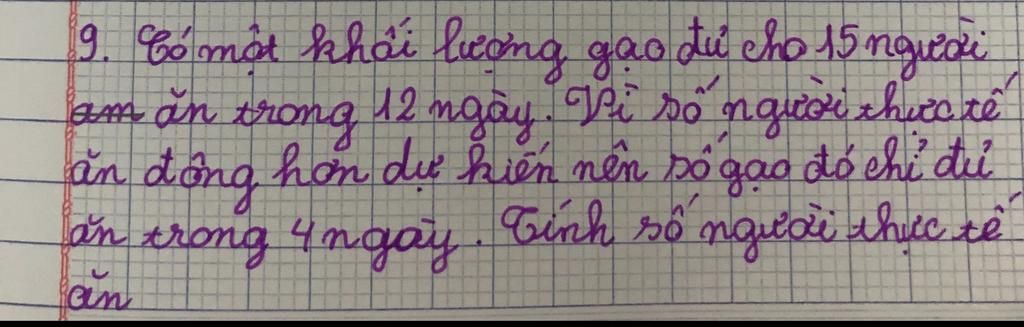 9. Có một khối lượng gạo đủ cho 15 người
am ăn trong 12 ngày. Vì số người thực tế
ăn đông hơn dự kiến nên số gạo đó chỉ đủ
ăn trong 4 ngày. Tính số người thực tế
ăn